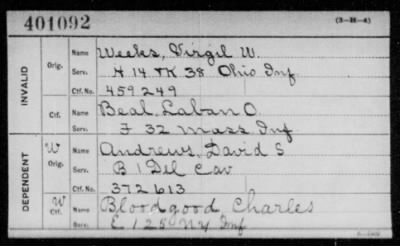 401092 (3-H-4)
INVALID Orig. Name Weeks, Virgil W.
Serv. H 14 TK 38 Ohio Inf
Ctf. No. 459249
Ctf. Name Beal, Laban O
Serv. F 32 Mass Inf
DEPENDENT W Orig. Name Andrews, David S
Serv. B 1 Del Cav
Ctf. No. 372613
W Ctf. Name Bloodgood Charles
Serv. E 125 NY Inf